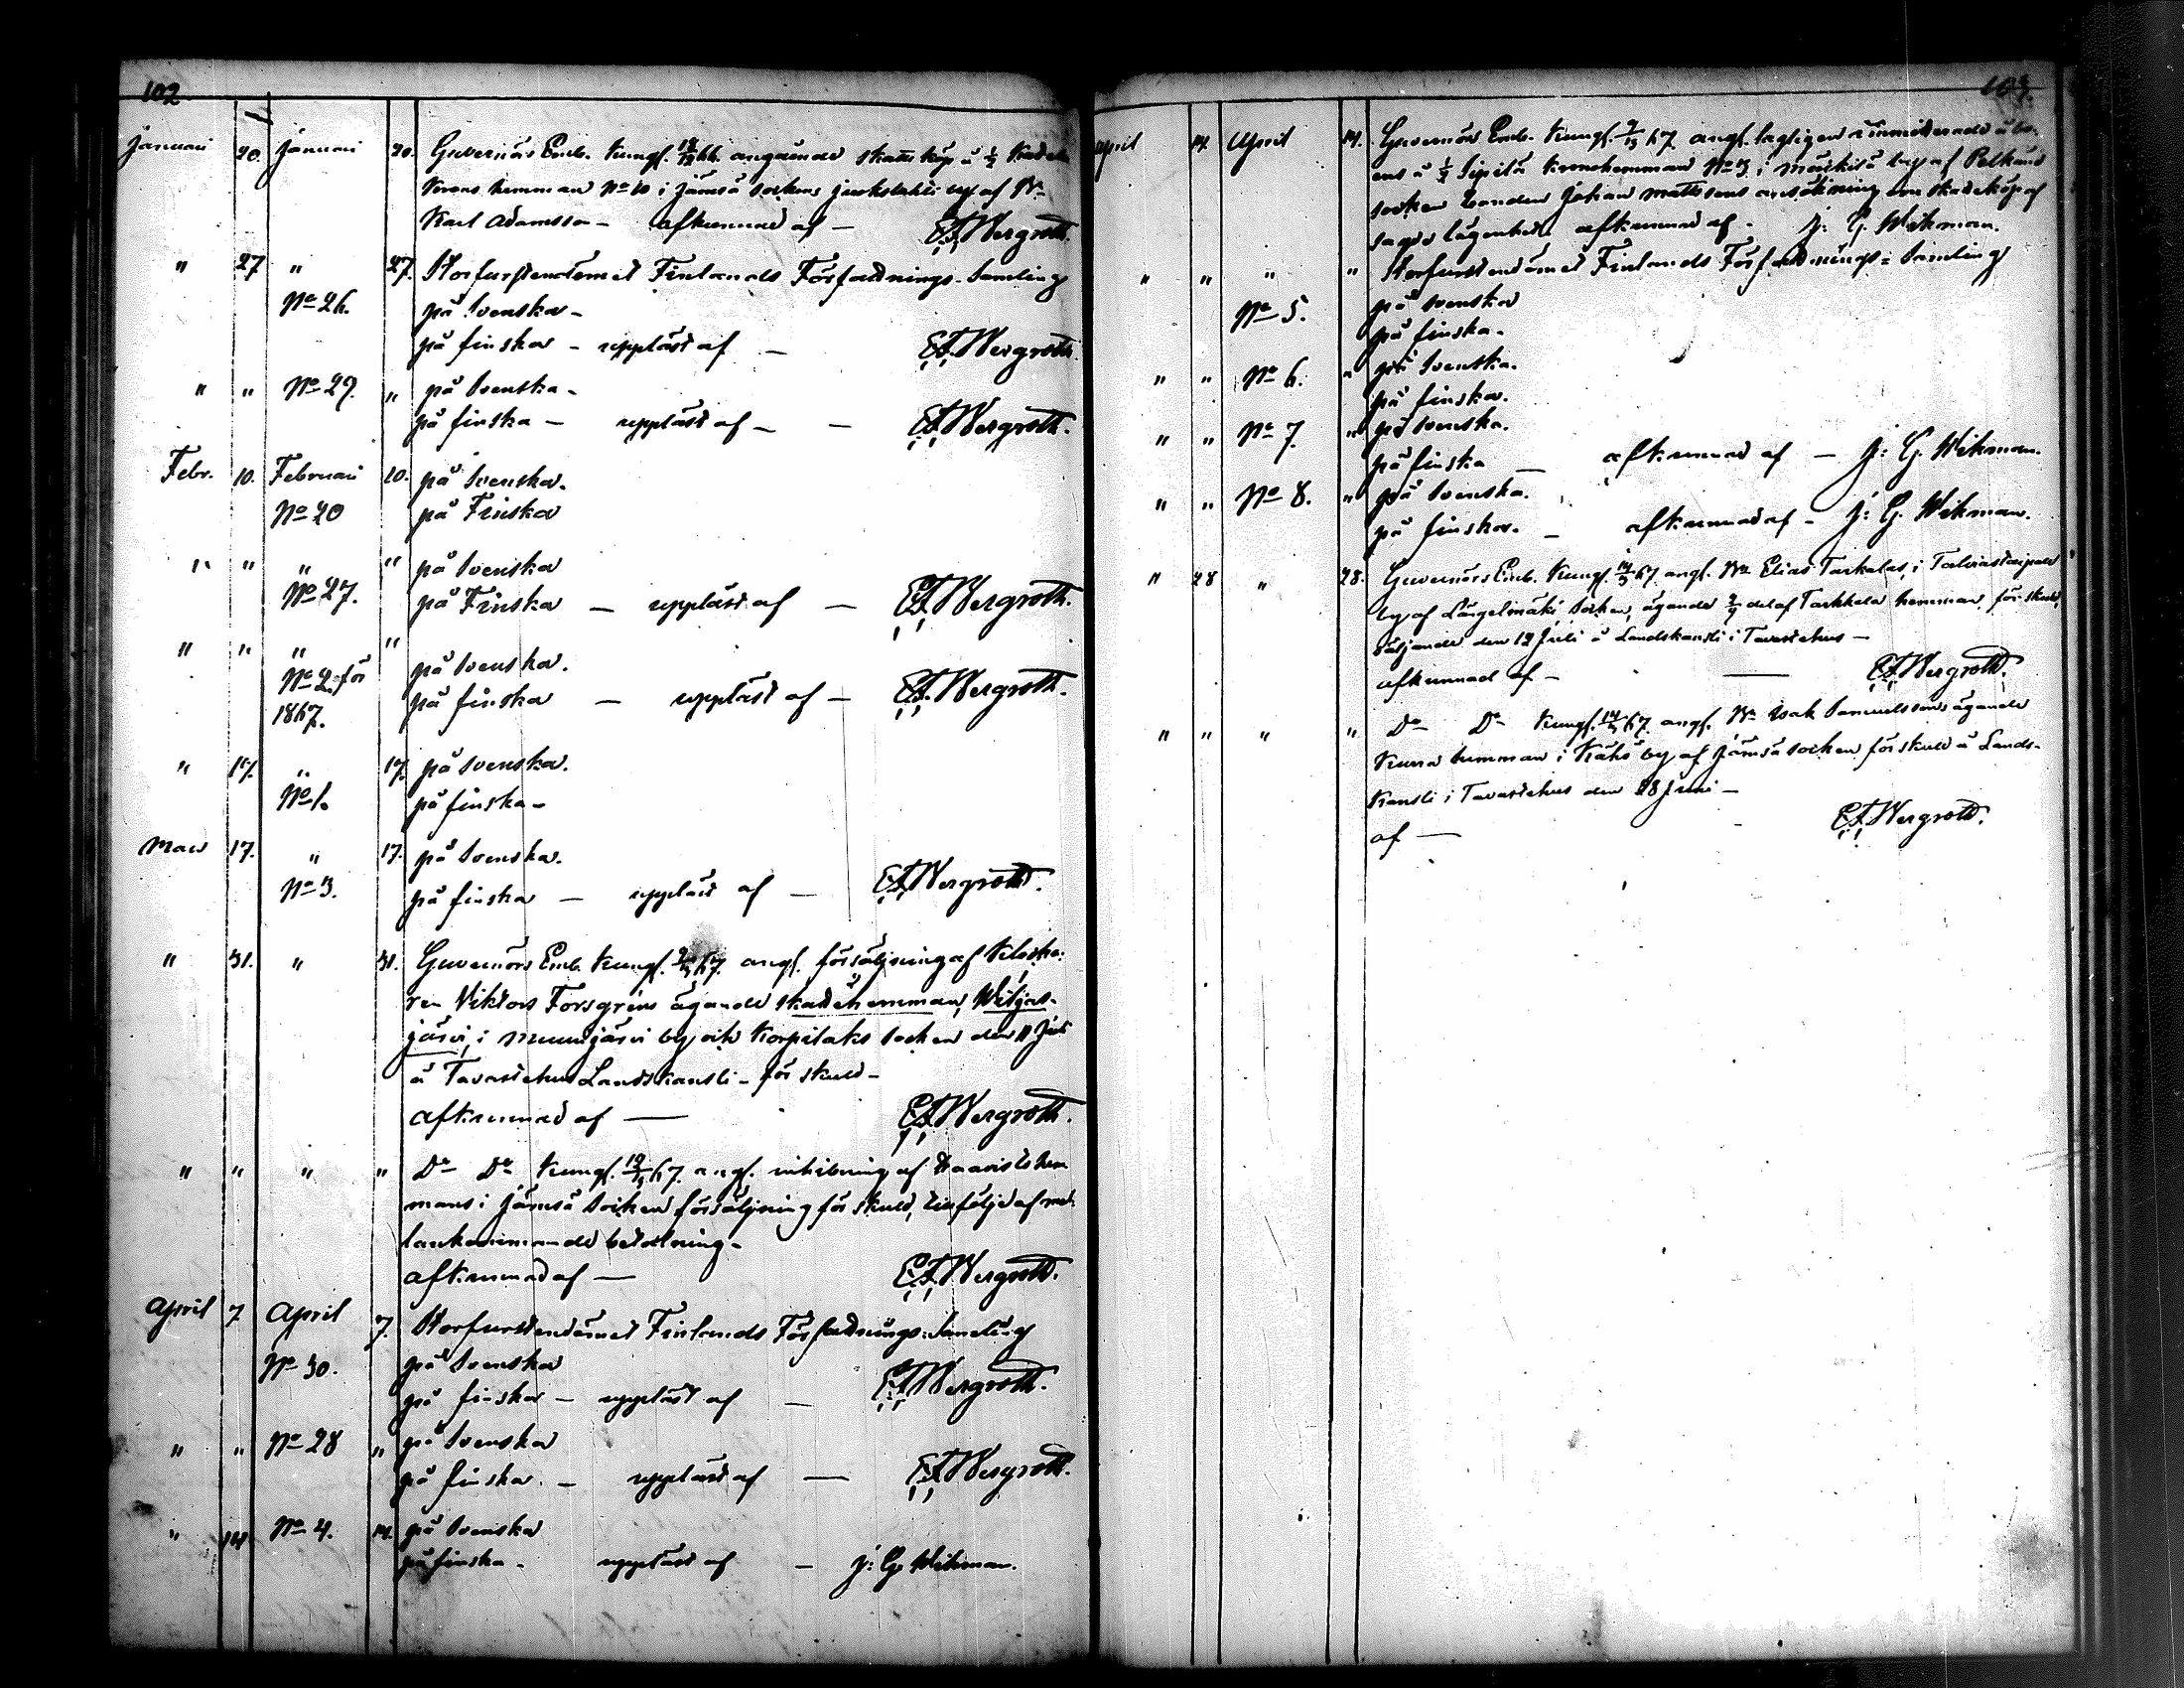 102
Januari 20. Januari 20. Guvernörs Emb. Kungf. 18/12 66. angående skatteköp å 1/2
Krono hemman No 10 i Jämsä sockens by af
Karl Adamsson – afkunnad af – E.F. Bergroth.
" 27 " 27. Storfurstendömet Finlands Författnings-Samling
No 26. på Svenska –
på finska – uppläst af – E.F. Bergroth
" " No 29. " på Svenska –
på finska – uppläst af – – E.F. Bergroth.
Febr. 10. Februari 10. på Svenska.
No 20 på Finska
" " " " på Svenska
No 27. på Finska – uppläst af – E.F. Bergroth.
" " " "
No 2. för på Svenska.
1867. på finska – uppläst af – E.F. Bergroth.
" 17. " 17. på Svenska.
No 1. på finska –
Mars 17. " 17. på Svenska.
No 3. på finska – uppläst af – E.F. Bergroth.
" 31. " 31. Guvernörs Emb. Kungf. 67. angf. försäljning af Klocka-
ren Viktors Forsgréns ägande skattehemman,
järvi, i by och Korpilaks socken den 11 Juli
å Tavastehus Landskansli – för skuld –
afkunnad af — E.F. Bergroth.
" " " " Do Do Kungf. 67. angf. inhibering af hem
mans i Jämsä socken försäljning för skuld, till följd af mel-
lankommande betalning –
afkunnad af — E.F. Bergroth.
April 7 April 7. Storfurstendömet Finlands Författnings-Samling
No 30. på Svenska
på finska – uppläst af – E.F. Bergroth.
" " No 28 " på Svenska
på finska. – uppläst af — E.F. Bergroth.
" 14 No 4. 14. på Svenska
på finska – uppläst af – J: G. Wikman.
103.
April 14. April 14. Guvernörs Emb. Kungf. 67. angf. lagligen
ens å 1/2 Sipilä Kronohemman No 3 i by af Pelkäne
socken bonden Johan Mattssons ansökning om skatteköp af
sagde lägenhet afkunnad af – J: G. Wikman.
" " " " Storfurstendömet Finlands Författnings-Samling
No 5. på Svenska
på finska –
" " No 6. " på Svenska.
på finska.
" " No 7. " på Svenska.
på finska — afkunnad af – J: G. Wikman.
" " No 8. " på Svenska.
på finska. – afkunnad af – J: G. Wikman.
" 28 " 28. Guvernörs Emb. Kungf. 67. angf. Elias Tarkalas, i
by af Längelmäki socken, ägande del af Tarkkala hemman, för skuld,
säljande den 12 Juli å Landskansli i Tavastehus –
afkunnad af – — E.F. Bergroth.
" " " " Do Do Kungf. 67. angf. Isak Samuelssons ägande
hemman i by af Jämsä socken för skuld å Lands-
kansli i Tavastehus den 28 Juni –
af — – E.F. Bergroth.